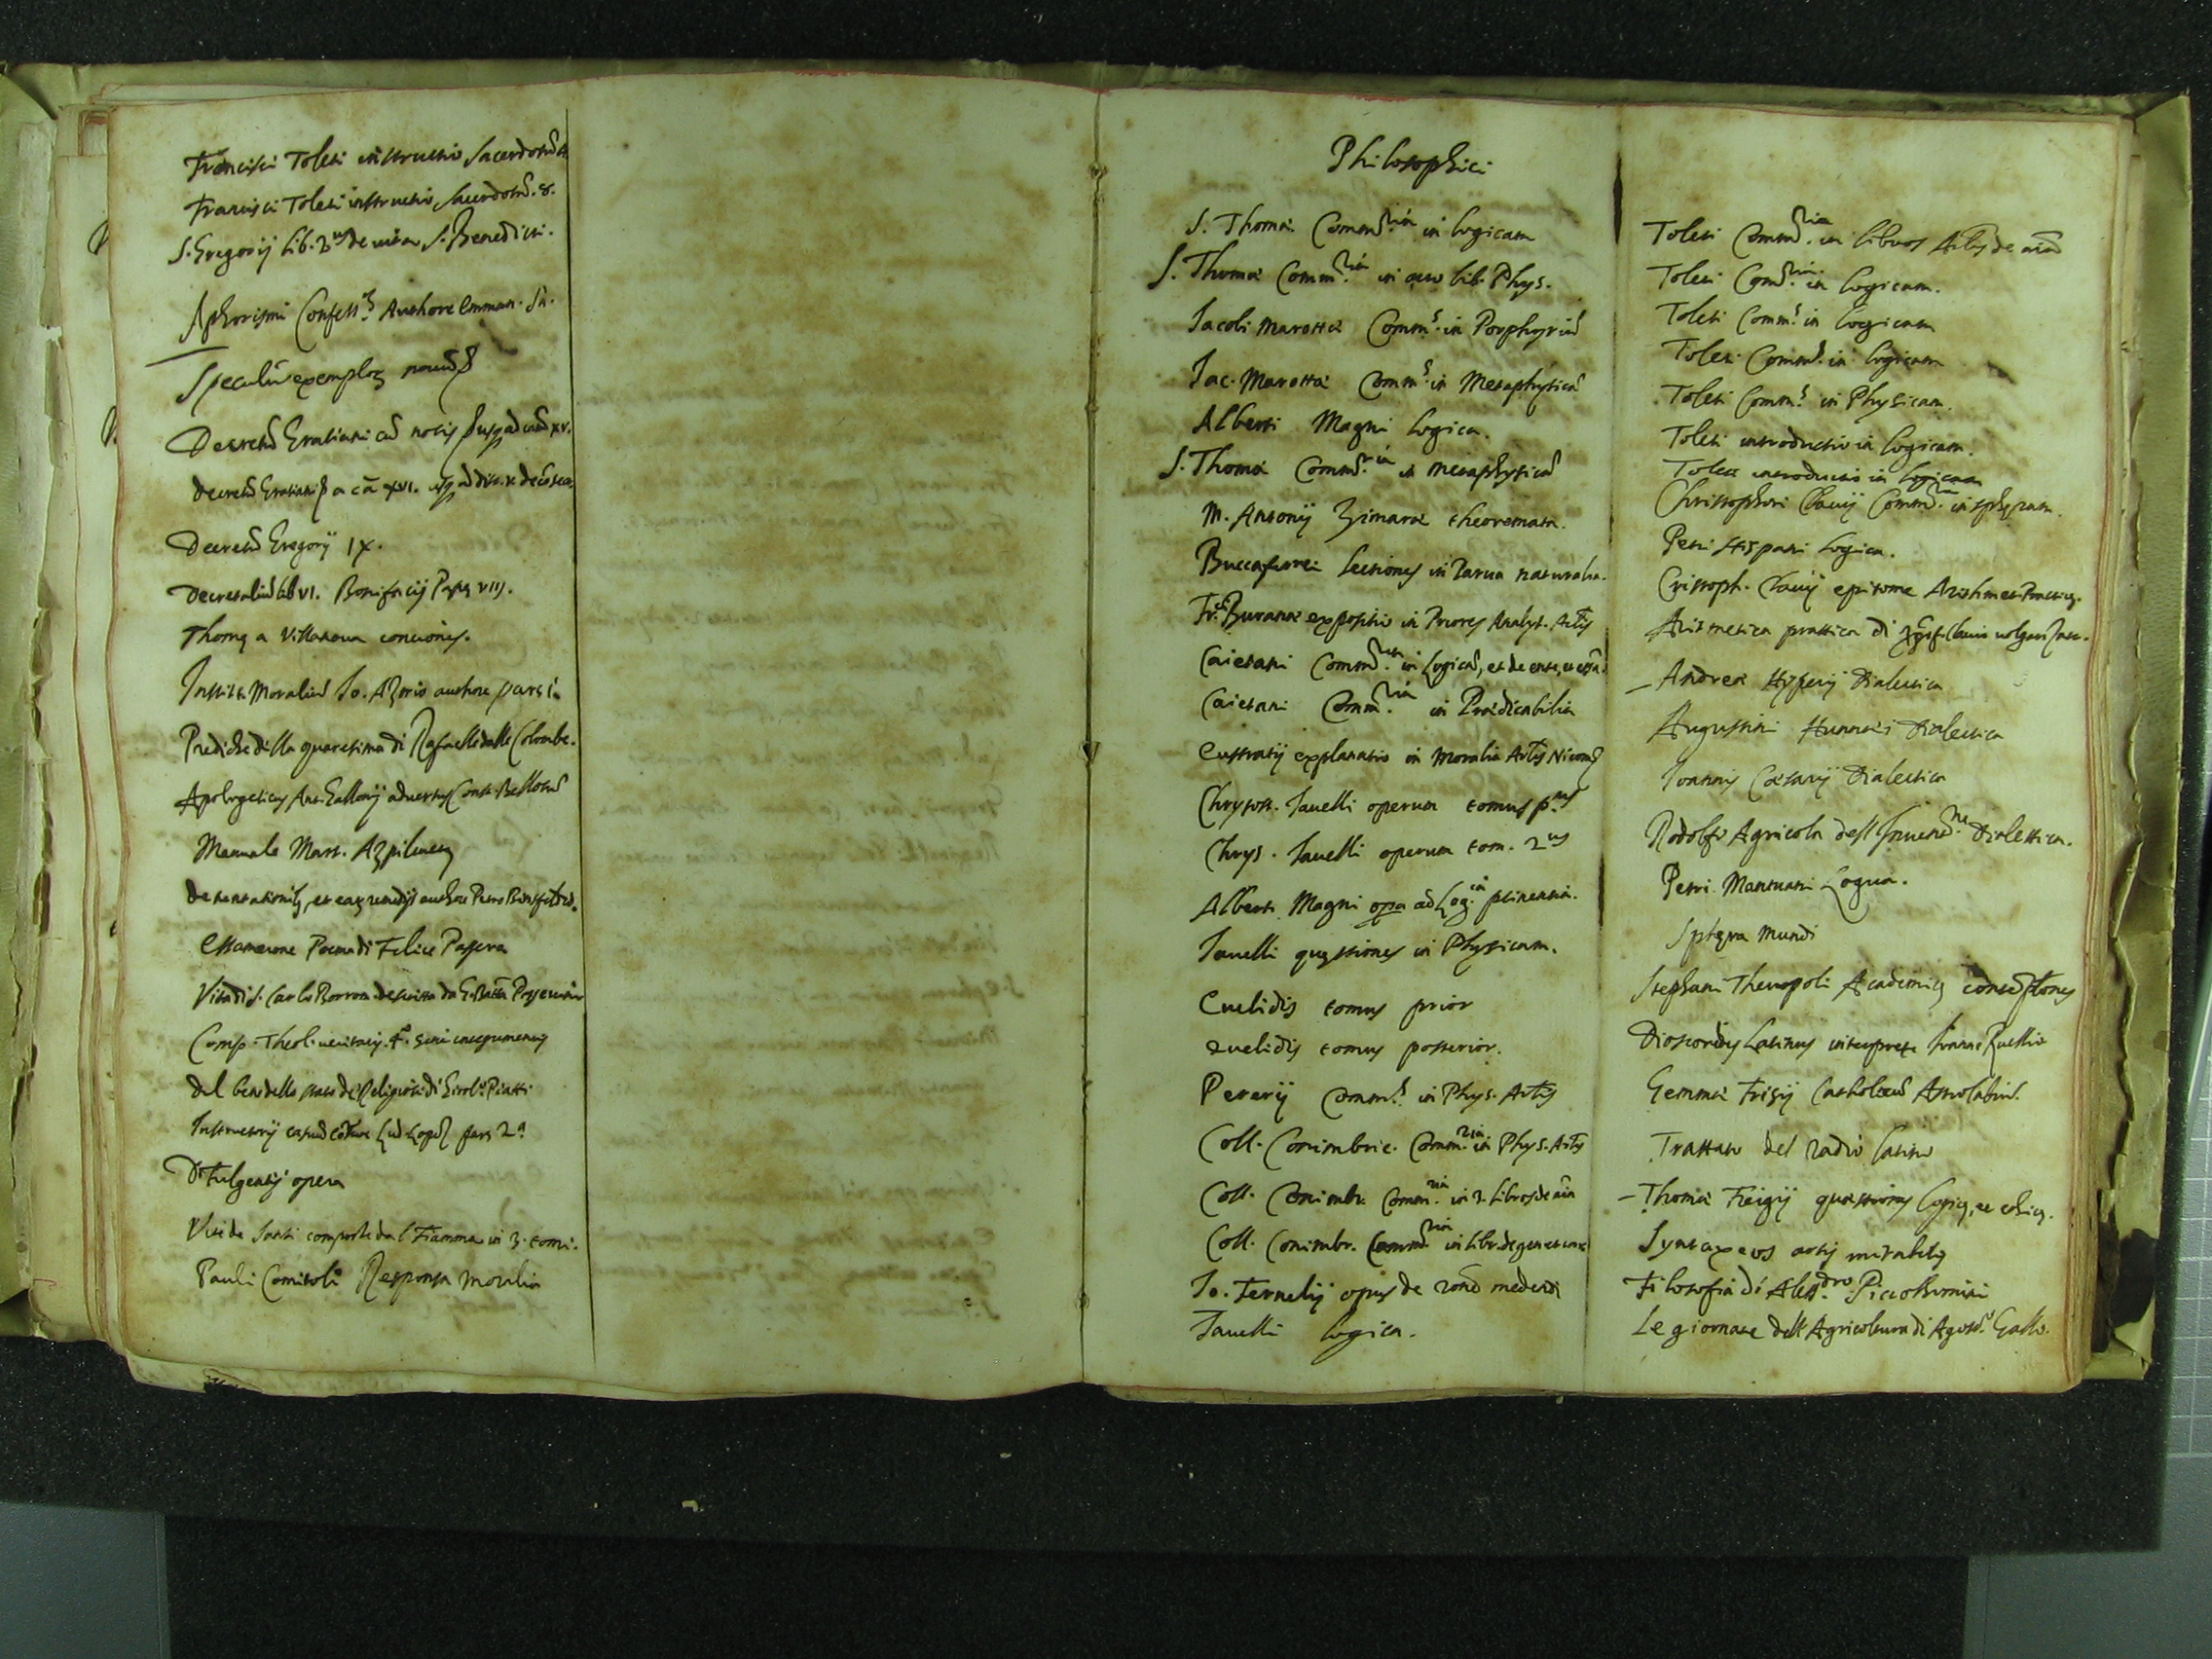 Francisci Toleti instructio Sacerdotũ 4
Francisci Toleti instructio Sacerdotũ. 8.
S. Gregorij lib. 2.us de vita S. Benedicti.
Aphorismi Confess. Authore Emman. Sà.
Speculũ exemploꝝ
Decretũ Gratiani cũ notis ad caũ xv.
Decretũ Gratiani a cã xvi.
Decretũ Gregorij IX.
Decretaliũ lib VI. Bonifacij Papę VIII.
Thomę a Villanova conciones.
Instit. Moraliũ Io. Azorio authore pars i.
Prediche della quaresima di Rafaelle dalle Colombe.
Apologeticus Ant. Gallonij adversus Const. Bellotũ
Manuale Mart. Azpilcuetę
De tentationib, et eaꝝ remedijs authore Petro Binsfeldio.
Essamerone Poema di Felice Passera
Vita di S. Carlo Borrom. descritta da G. Batta Possevino
Comp. Theol. veritatis. 4.
Del bene dello stato de Religiosi di Girol.o Piatti
Instructorij Lud. Lopez pars 2.a
D. Fulgentij opera
Vite de Santi composte dal Fiamma in 3. tomi.
Pauli Comitoli Responsa Moralia
Philosophici
S. Thomæ Comm.ria in Logicam
S. Thomæ Comm.ria in octo lib. Phys.
Iacobi Marottæ Comm. in Porphyriũ
Iac. Marottæ Comm. in Metaphysicã
Alberti Magni Logica.
S. Thomæ Comm.ria in Metaphysicã
M. Antonij Zimaræ theoremata.
Buccaferrei Lectiones in Parva naturalia.
Fr.ci Buranæ expositio in Priores Analyt. Artis
Caietani Comm.ria in Logicã, et de ente, et essã.
Caietani Comm.ria in Prædicabilia
Eustratij explanatio in Moralia Artis Nicom
Chrysost. Iavelli operum tomus p.us
Chrys. Iavelli operum tom. 2.us
Alberti Magni opa ad Log.cã ptinentia.
Iavelli quęstiones in Physicam.
Euclidis tomus prior
Euclidis tomus posterior.
Pererij Comm. in Phys. Artis
Coll. Conimbric. Comm.ria in Phys. Artis
Coll. Conimbr. Comm.ria in 3. libros de aĩa
Coll. Conimbr. Comm.ria in libr. de generatione
Io. Fernelij opus de rone medendi
Iavelli Logica.
Toleti Comm.ria in libros Artis de aĩa
Toleti Comm.ria in Logicam.
Toleti Comm. in Logicam
Toleti Comm. in Logicam
Toleti Comm. in Physicam.
Toleti introductio in Logicam.
Toleti introductio in Logicam
Christophori Clavij Comm.ria in sphęram.
Petri Hispani Logica.
Cristoph. Clavij epitome Arithmet. Practicę.
Aritmetica prattica di Clavio
Andreæ Hyperij Dialectica
Augustini Hunnæi Dialectica
Ioannis Cæsarij Dialectica
Rodolfo Agricola dell Invenõ.ne Dialettica.
Petri Mantuani Logica.
Sphęra Mundi
Stephani Theupoli Academicę contẽplõnes
Dioscorides Latinus interprete Ioanne Ruellio
Gemmæ Frisij Catholicũ Astrolabiũ.
Trattato del radio Latino
Thomæ Freigij quæstiones Logicę, et ethicę.
Syntaxeos artis mirabilis
Filosofia di Aless.dro Piccolomini
Le giornate dell Agricoltura di Agost.o Gallo.